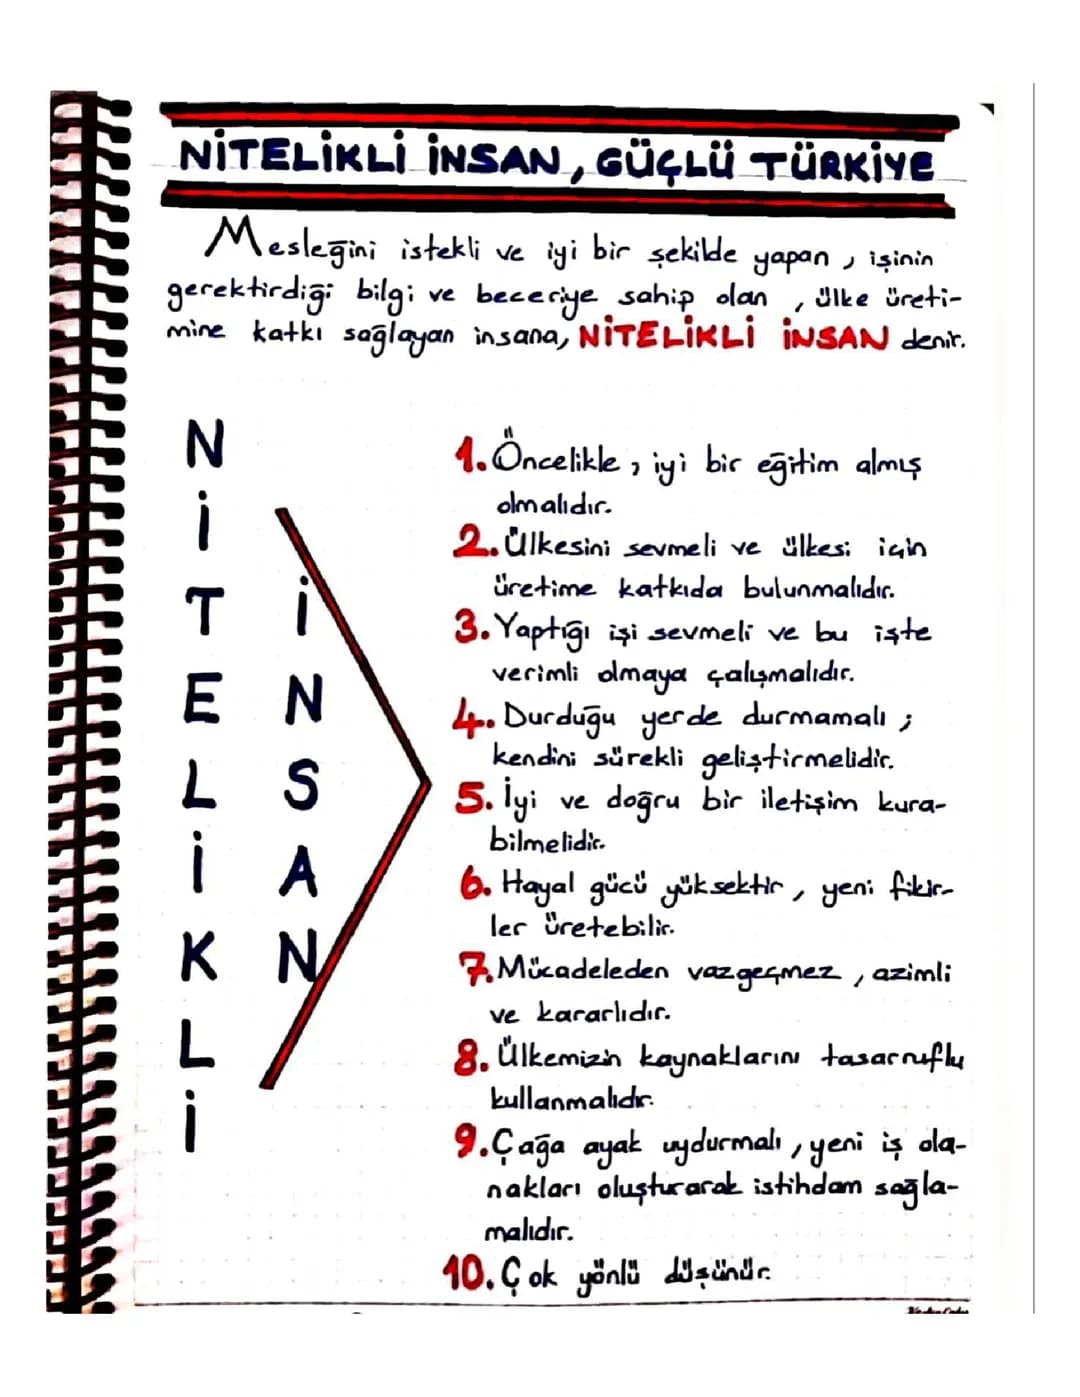 NİTELİKLİ İNSAN, GÜÇLÜ TÜRKİYE
Mesleğini istekli ve iyi bir şekilde yapan, işinin
gerektirdiği bilgi ve beceriye sahip olan, ülke üreti-
mine katkı sağlayan insana, NİTELİKLİ İNSAN denir.
NİTELİKLİ
İNSAN
1. Öncelikle, iyi bir eğitim almış
olmalıdır.
2. Ülkesini sevmeli ve ülkesi için
üretime katkıda bulunmalıdır.
3. Yaptığı işi sevmeli ve bu işte
verimli olmaya çalışmalıdır.
4. Durduğu yerde durmamalı;
kendini sürekli geliştirmelidir.
5. İyi ve doğru bir iletişim kura-
bilmelidir.
6. Hayal gücü yüksektir, yeni fikir-
ler üretebilir.
7. Mücadeleden vazgeçmez, azimli
ve kararlıdır.
8. Ülkemizin kaynaklarını tasarruflu
kullanmalıdır.
9. Çağa ayak uydurmalı, yeni iş ola-
nakları oluşturarak istihdam sağla-
malıdır.
10. Çok yönlü düşünür.